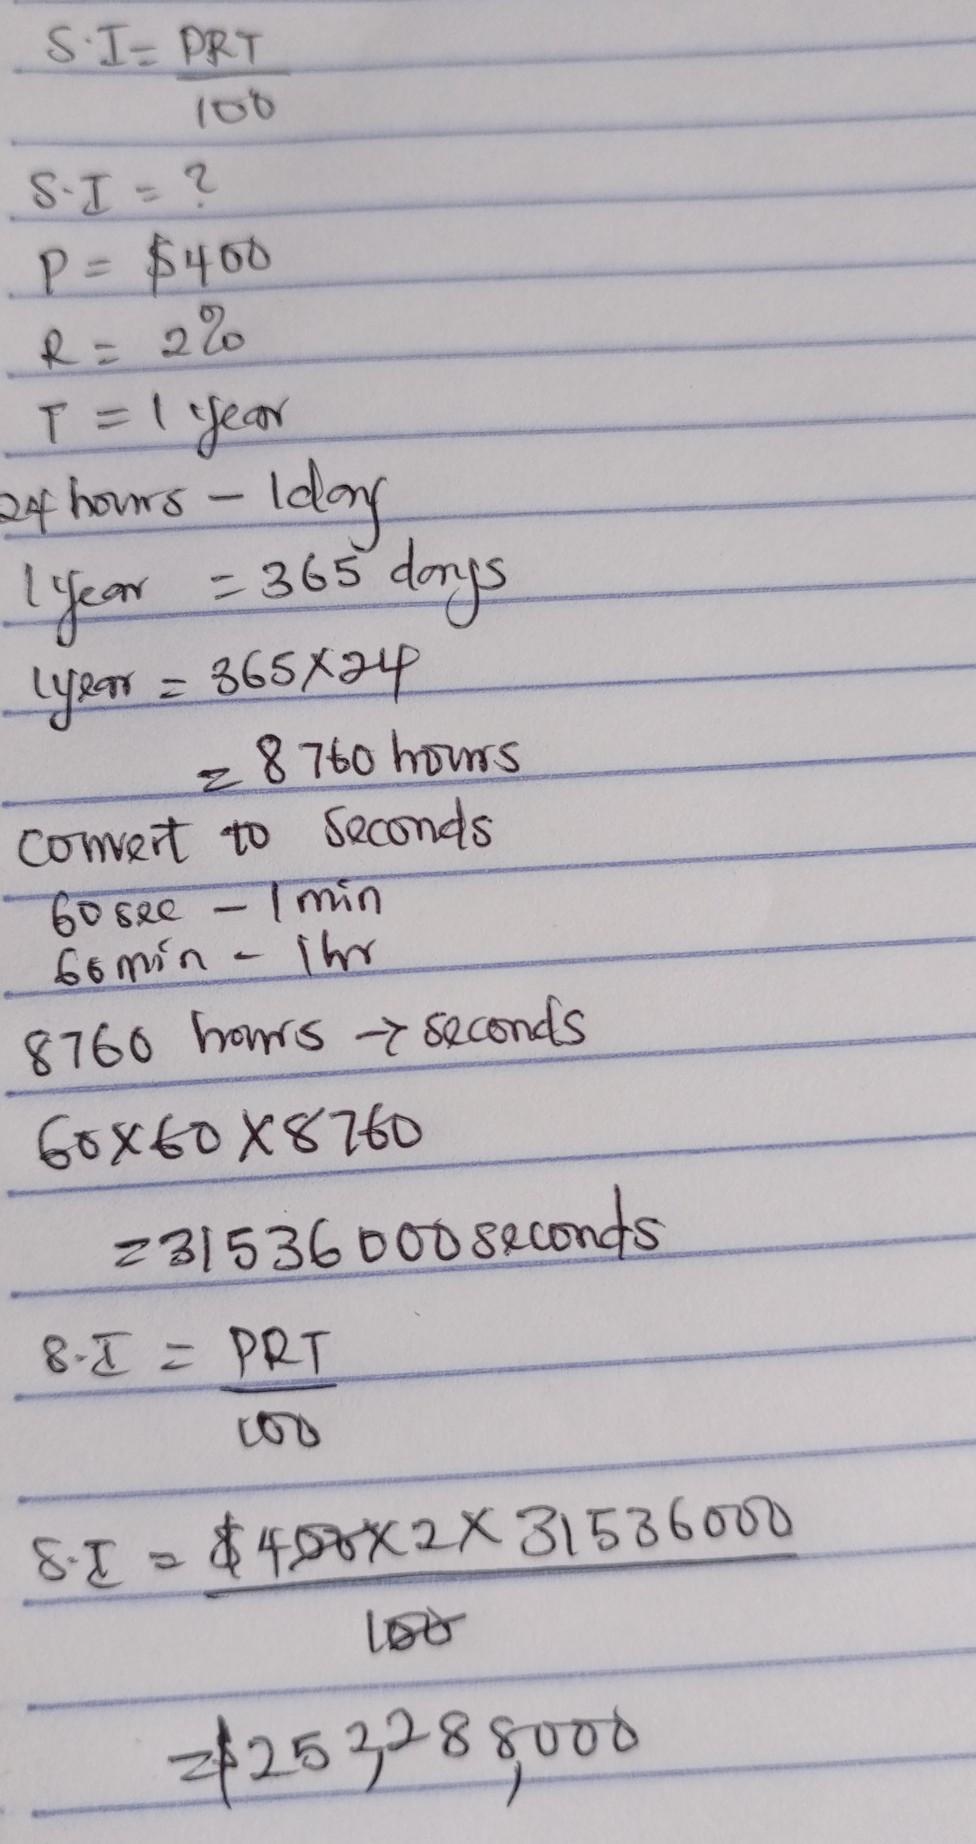 S.I = PRT
100
S.I = ?
P = $400
R = 2%
T = 1 year
24 hours - 1day
1 year = 365 days
1year = 365 X 24
= 8760 hours
convert to seconds
60 sec - 1 min
60 min - 1 hr
8760 hours → seconds
60 X 60 X 8760
= 31536000 seconds
S.I = PRT
100
S.I = $400 X 2 X 31536000
100
= $253,288,000